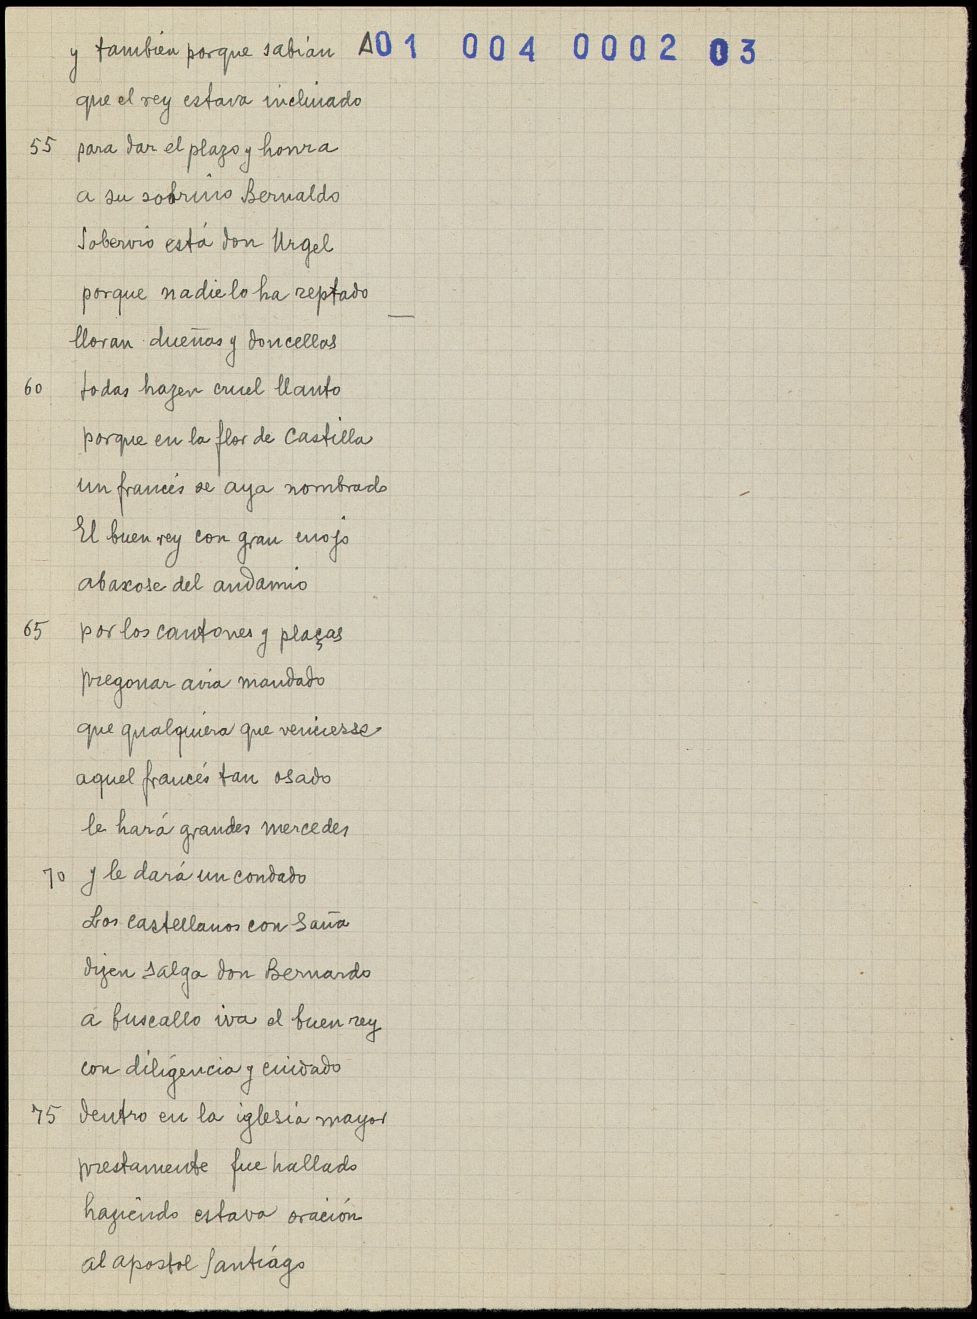 y también porque sabían A01 004 0002 03
que el rey estava inclinado
55 para dar el plazo y honra
a su sobrino Bernaldo
Sobervio está don Urgel
porque nadie lo ha reptado
lloran dueñas y doncellas
60 todas hazen cruel llanto
porque en la flor de Castilla
un francés se aya nombrado
El buen rey con gran enojo
abaxose del andamio
65 por los cantones y plaças
pregonar avia mandado
que qualquiera que venciesse
aquel francés tan osado
le hará grandes mercedes
70 y le dará un condado
Los castellanos con saña
dizen salga don Bernardo
a buscallo iva el buen rey
con diligencia y cuidado
75 dentro en la iglesia mayor
prestamente fue hallado
haziendo estava oración
al apostol Santiago